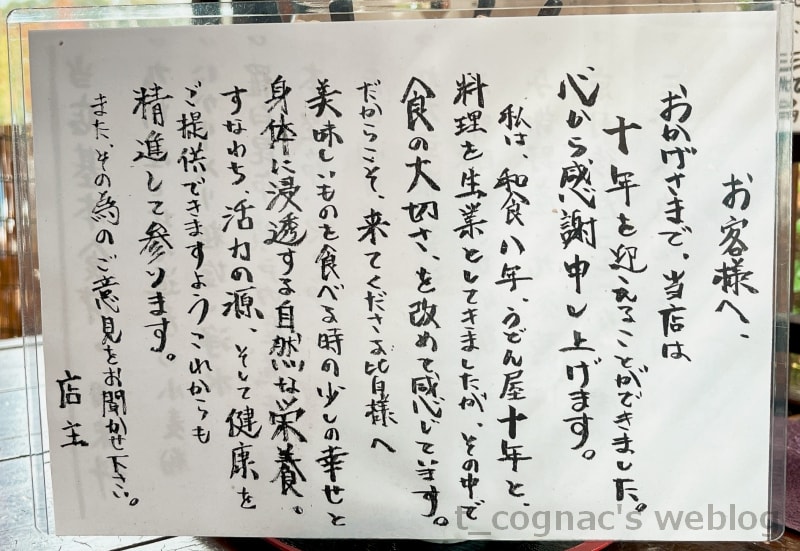 お客様へ、
おかげさまで、当店は
十年を迎えることができました。
心から感謝申し上げます。
私は、和食八年、うどん屋十年と、
料理を生業としてきましたが、その中で
食の大切さ、を改めて感じています。
だからこそ、来てくださる皆様へ
美味しいものを食べる時の少しの幸せと
身体に浸透する自然な栄養。
すなわち、活力の源、そして健康を
ご提供できますようこれからも
精進して参ります。
また、その為のご意見をお聞かせ下さい。
店主
t_cognac's weblog